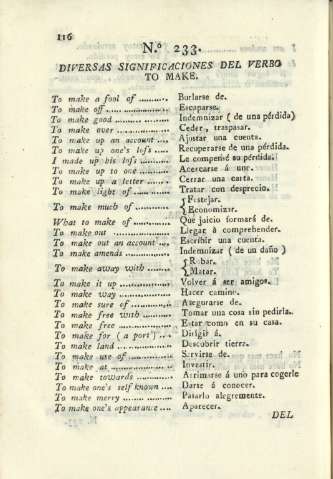 116
N.º 233.
DIVERSAS SIGNIFICACIONES DEL VERBO
TO MAKE.
To make a fool of .......... Burlarse de.
To make off .............. Escaparse.
To make good ............ Indemnizar ( de una pérdida)
To make over ............ Ceder, traspasar.
To make up an account .... Ajustar una cuenta.
To make up one's loss ..... Recuperarse de una pérdida.
I made up his loss ......... Le compensé su pérdida.
To make up to one ........ Acercarse á uno.
To make up a letter ...... Cerrar una carta.
To make light of .......... Tratar con desprecio.
To make much of .......... { Festejar.
Economizar.
What to make of .......... Qué juicio formará de.
To make out .............. Llegar á comprehender.
To make out an account ... Escribir una cuenta.
To make amends .......... Indemnizar ( de un daño )
To make away with ........ { Robar.
Matar.
To make it up ............ Volver á ser amigos.
To make way ............. Hacer camino.
To make sure of .......... Asegurarse de.
To make free with ........ Tomar una cosa sin pedirla.
To make free ............. Estar como en su casa.
To make for ( a port ) .... Dirigir á.
To make land ............ Descubrir tierra.
To make use of ........... Servirse de.
To make at ............... Investir.
To make towards .......... Arrimarse á uno para cogerle
To make one's self known .... Darse á conocer.
To make merry ........... Pasarlo alegremente.
To make one's appearance .... Aparecer.
DEL